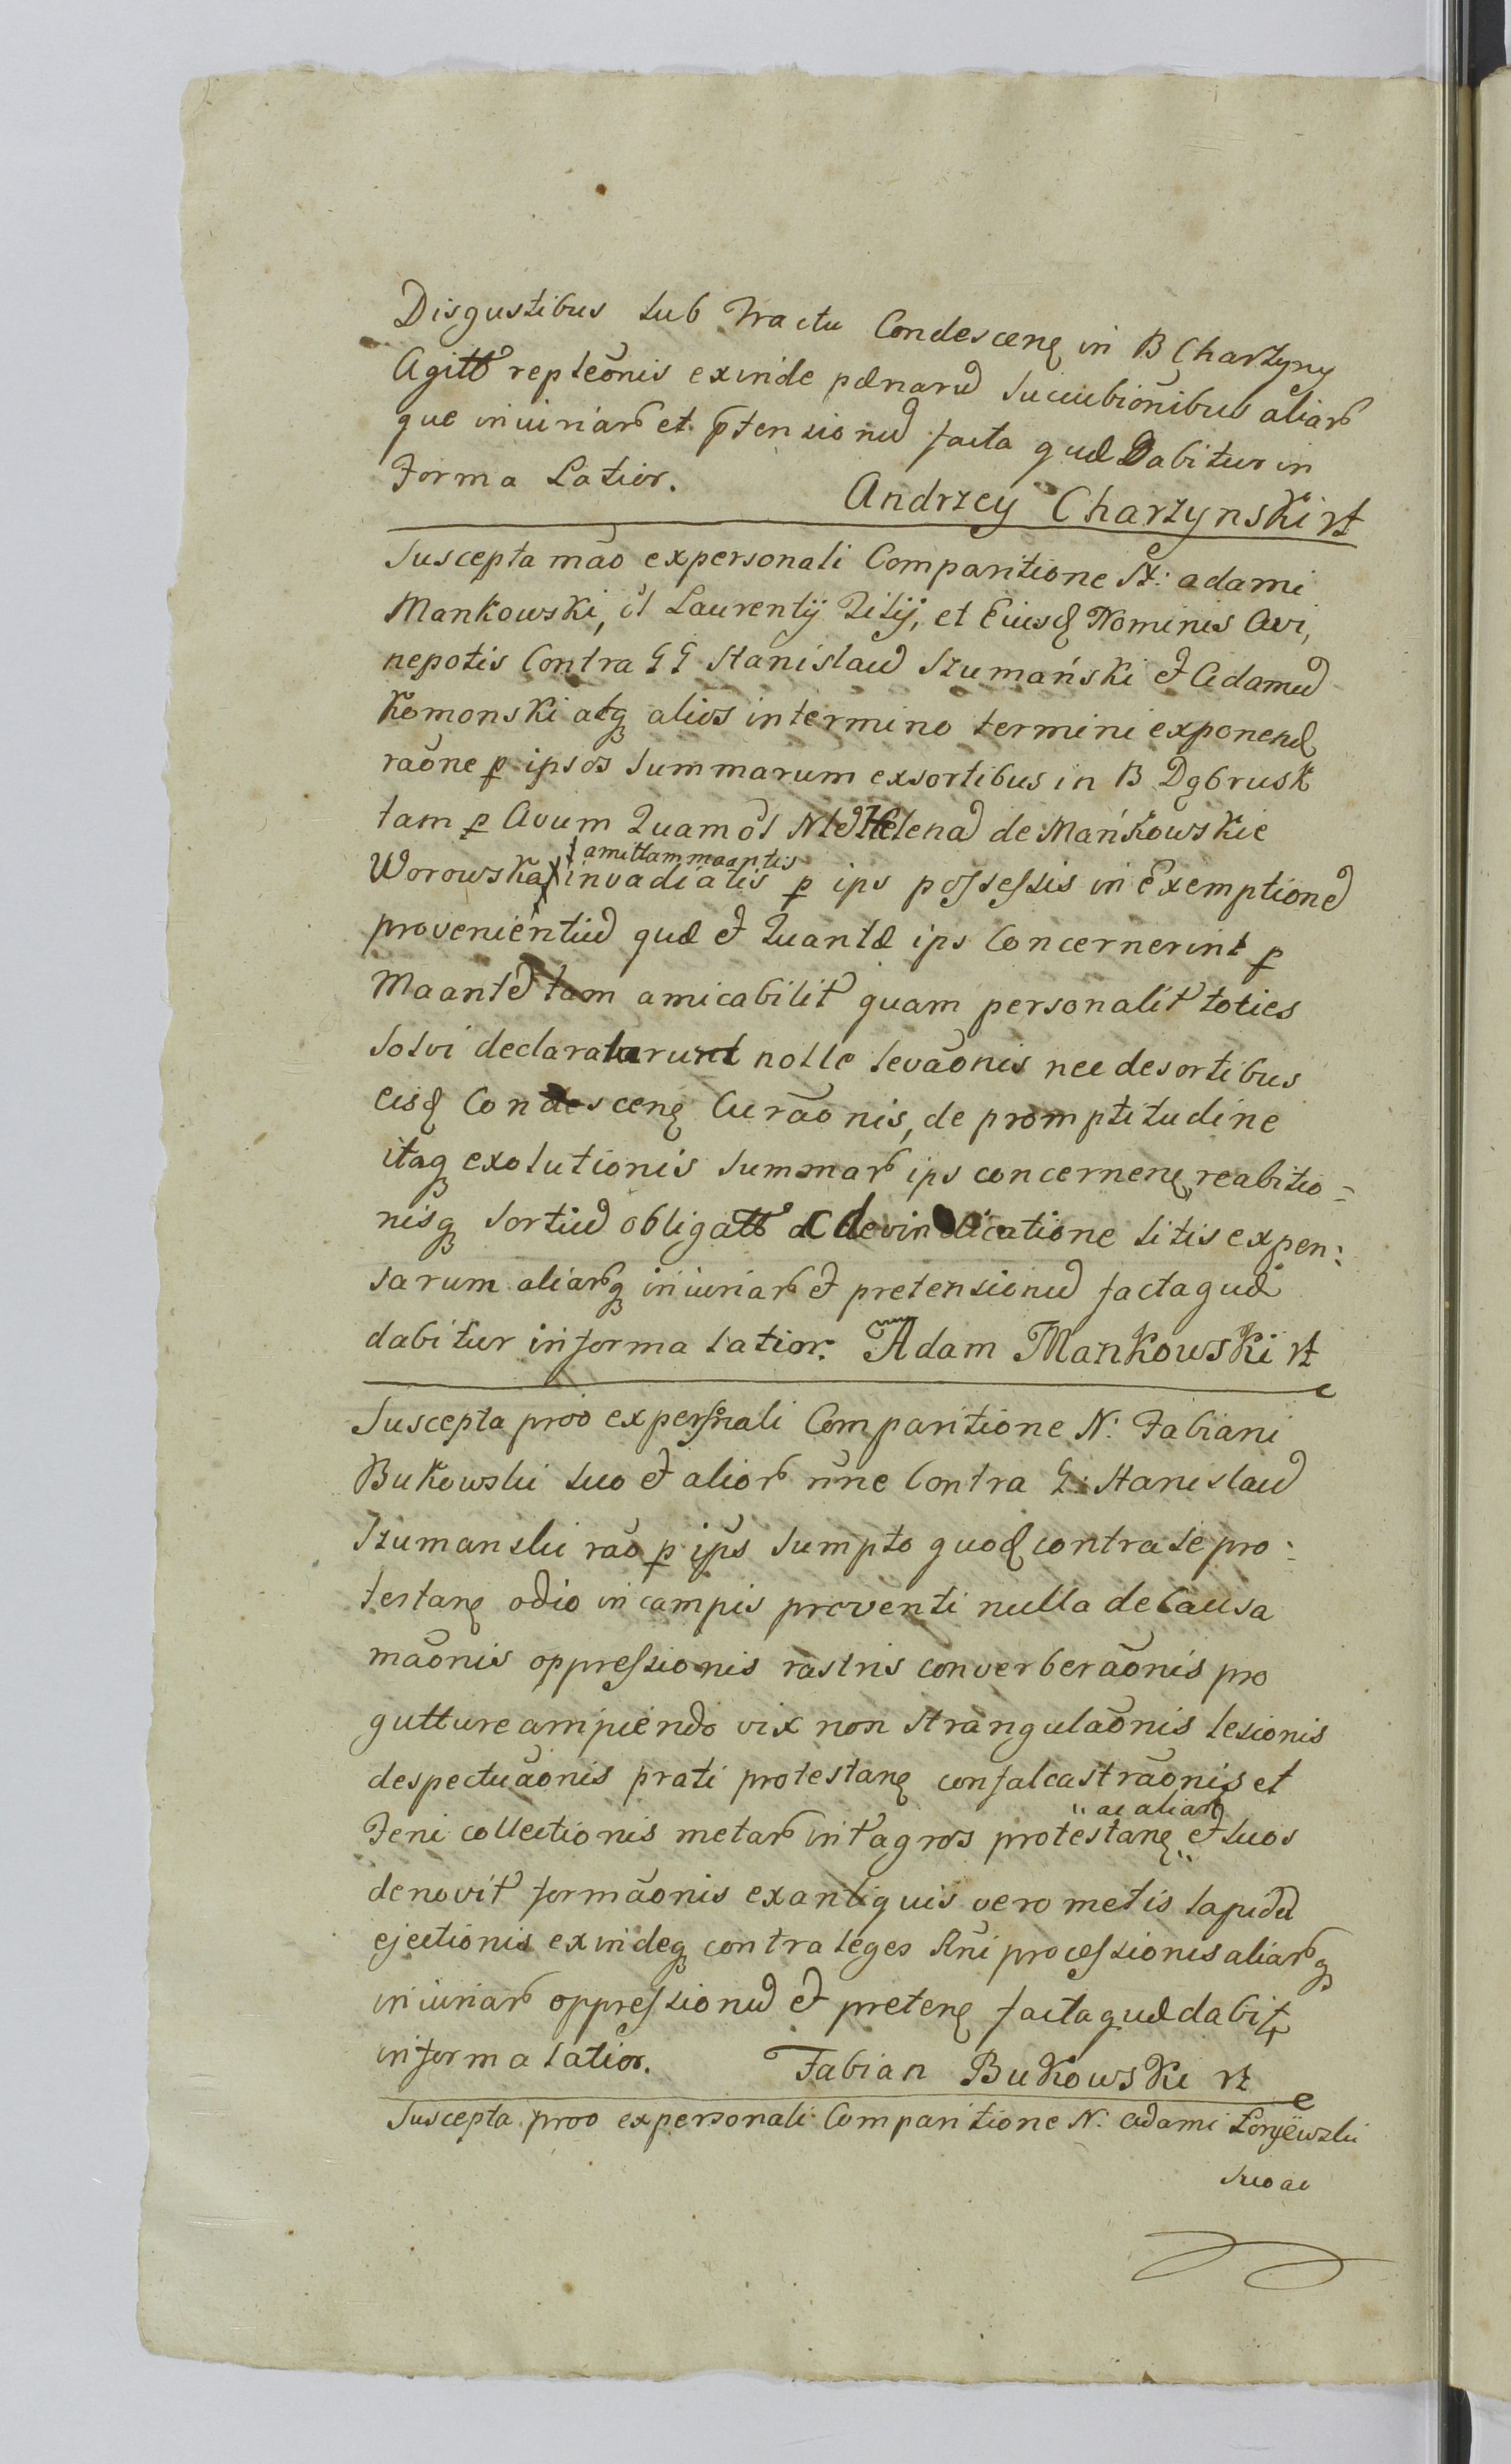 Disgustibus sub Tractu Condescenę in B Charzyny
Agitt repleōnis exinde pænarū succubiōnibus aliar
que iniuriar et p̄tensionū facta quæ Dabitur in
Forma Latior. Andrzey Charzynski
Suscepta māo expersonali Comparitione adami
Mankowski, Laurentij Filij, et Eiusd Nominis Avi,
nepotis Contra GG Stanislaū Szumański et Adamū
Komonski atq alios intermino termini exponend
rāone p ipsos Summarum exsortibus in B Dąbrusk
tam p Avum Quam Helenā de Mańkowskie
Worowska invadiatis p ips possessis in Exemptionē
amittam maantis
provenientiū quæ et Quantæ ips Concernerint p
Maantē tam amicabilit quam personalit toties
solvi declaratarunt nolle levāonis nec desortibus
eisd Condescenę Curāonis, de promptitudine
itaq exolutionis summar ips concernenę reabitio=
nisq sortiū obligatt ac devindicatione litis expen:
sarum aliarq iniuriar et pretensionū facta quæ
dabitur in forma latior. Adam Mankowski
Suscepta proo expersonali Comparitione N: Fabiani
Bukowski suo et alior nn̄e Contra G: Stanislaū
Szumanski rāo p ips̄ sumpto quod contra se pro:
testanę odio in campis preventi nulla de Causa
māonis oppressionis rastris converberāonis pro
gutture arripiendo vix non strangulāonis lesionis
despectuāonis prati protestanę confalcastrāonis et
ac aliar
Feni collectionis metar int agros protestanę et suos
denovit formāonis exantiquis vero metis lapidū
ejectionis exindeq contra leges Rn̄i processionis aliarq
iniuriar oppressionū et pretenę facta quæ dabit
in forma latior. Fabian Bukowski
Suscepta proo expersonali Comparitione N. Adami
suo ac